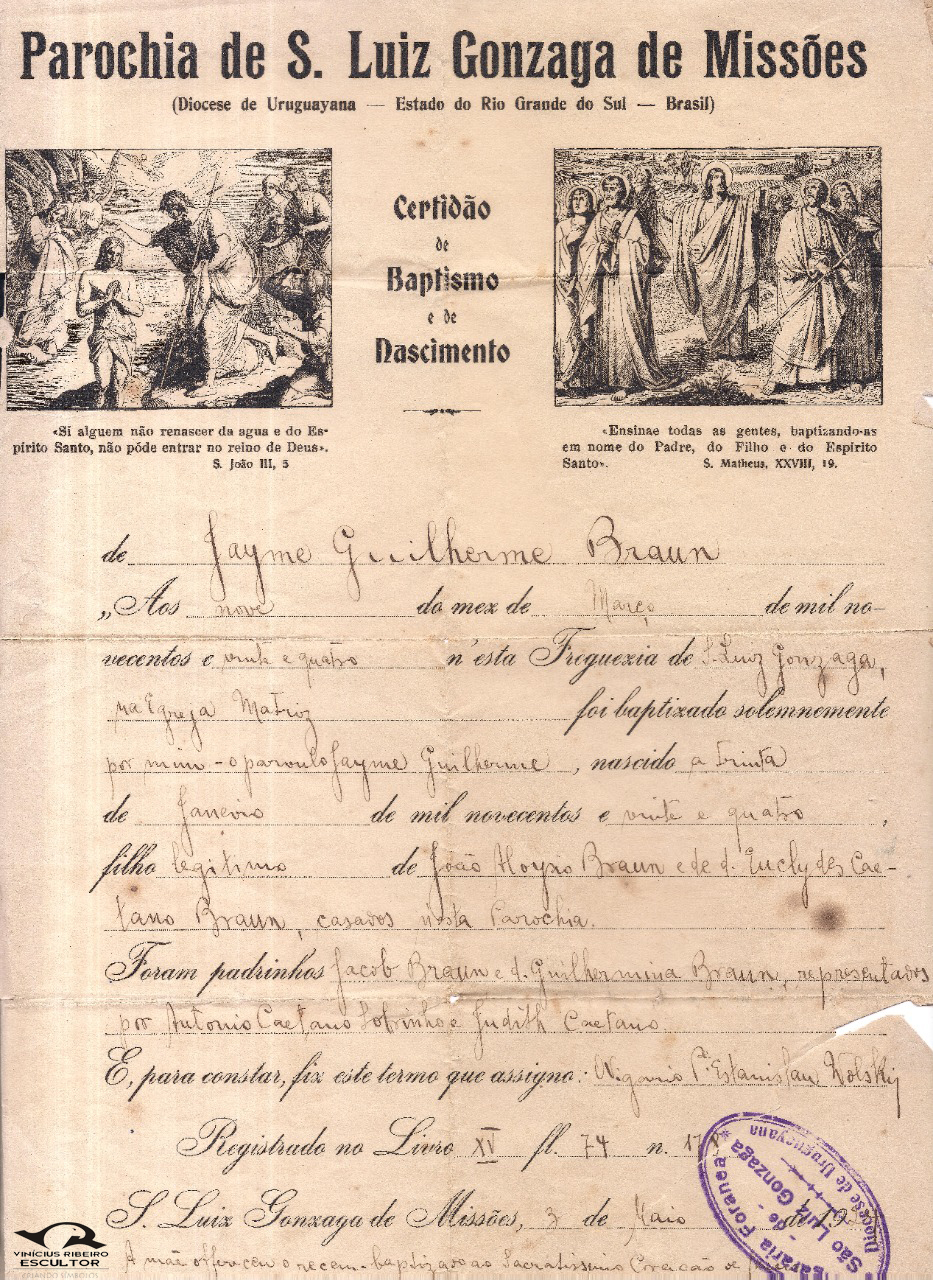 Parochia de S. Luiz Gonzaga de Missões
(Diocese de Uruguayana — Estado do Rio Grande do Sul — Brasil)
Certidão
de
Baptismo
e de
Nascimento
«Si alguem não renascer da agua e do Es-
pirito Santo, não póde entrar no reino de Deus».
S. João III, 5
«Ensinae todas as gentes, baptizando-as
em nome do Padre, do Filho e do Espirito
Santo». S. Matheus, XXVIII, 19.
de Jayme Guilherme Braun
„Aos nove do mez de Março de mil no-
vecentos e vinte e quatro n'esta Freguezia de S. Luiz Gonzaga,
na Egreja Matriz foi baptizado solemnemente
por mim - o parvulo Jayme Guilherme, nascido a trinta
de Janeiro de mil novecentos e vinte e quatro,
filho legitimo de João Aloysio Braun e de d. Euclydes Cae-
tano Braun, casados nesta Parochia.
Foram padrinhos Jacob Braun e d. Guilhermina Braun, representados
por Antonio Caetano Sobrinho e Judith Caetano
E, para constar, fiz este termo que assigno: Vigario Pe. Estanislau Wolski
Registrado no Livro XV fl. 74 n. 17
S. Luiz Gonzaga de Missões, 3 de Maio de 19
A mãe offereceu o recem-baptizado ao Sacratissimo Coração de
Foranea
São Luiz
- de - Gonzaga
Diocese de Uruguayana
VINÍCIUS RIBEIRO
ESCULTOR
CRIANDO SÍMBOLOS